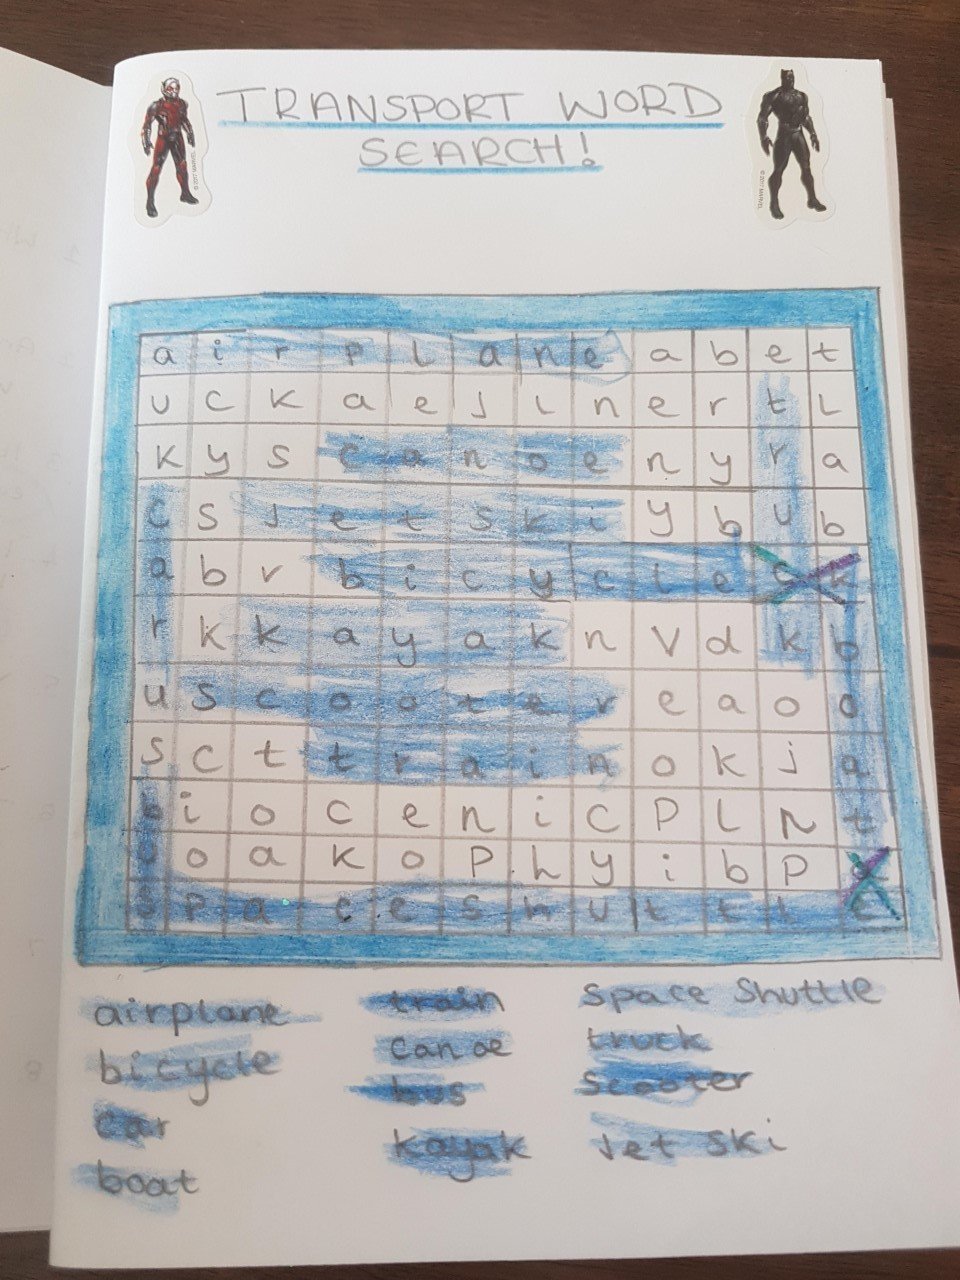 TRANSPORT WORD
SEARCH!
© 2017 MARVEL
© 2017 MARVEL
a i r p l a n e a b e t
u c k a e j l n e r t l
k y s c a n o e n y r a
c s j e t s k i y b u b
a b r b i c y c l e c k
r k k a y a k n v d k b
u s c o o t e r e a o o
s c t t r a i n o k j a
b i o c e n i c p l n t
u o a k o p h y i b p
s p a c e s h u t t l e
airplane train space shuttle
bicycle canoe truck
car bus scooter
boat kayak jet ski